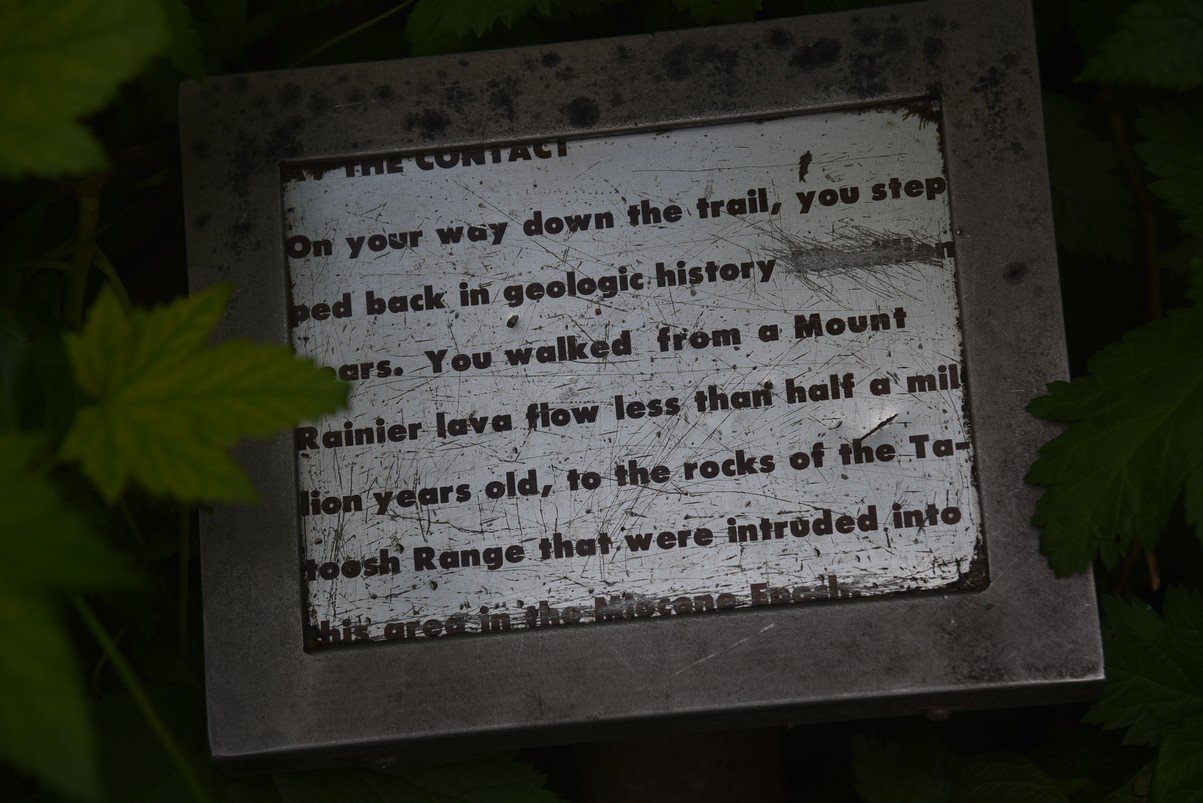 AT THE CONTACT
On your way down the trail, you step
ped back in geologic history
ears. You walked from a Mount
Rainier lava flow less than half a mil
lion years old, to the rocks of the Ta-
toosh Range that were intruded into
this area in the Miocene Epoch.